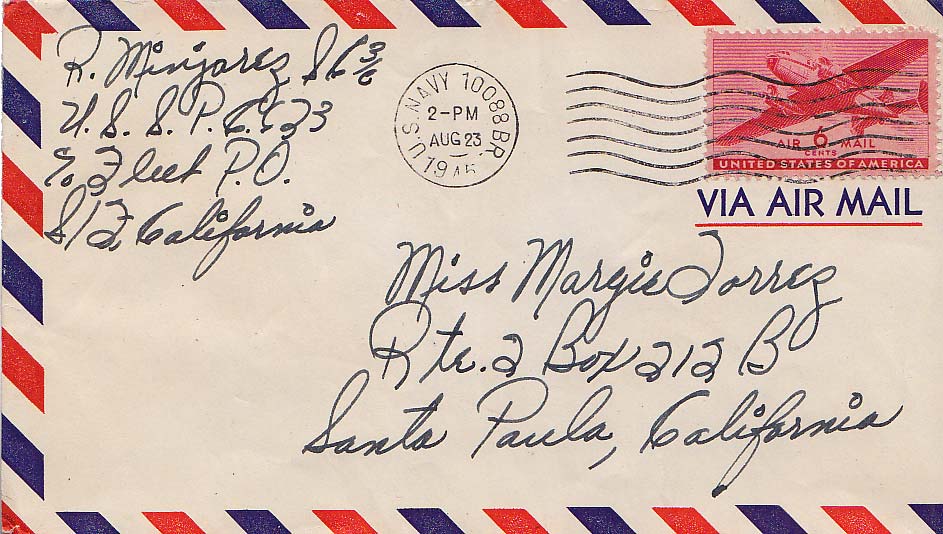 R. Minjarez SC 3/c
U. S. S. P. C. 623
c/o Fleet P.O.
S/F, California
U.S. NAVY 10088 BR.
2-PM
AUG 23
1945
AIR 6 MAIL
CENTS
UNITED STATES OF AMERICA
VIA AIR MAIL
Miss Margie Torrez
Rte. 2 Box 212 B
Santa Paula, California